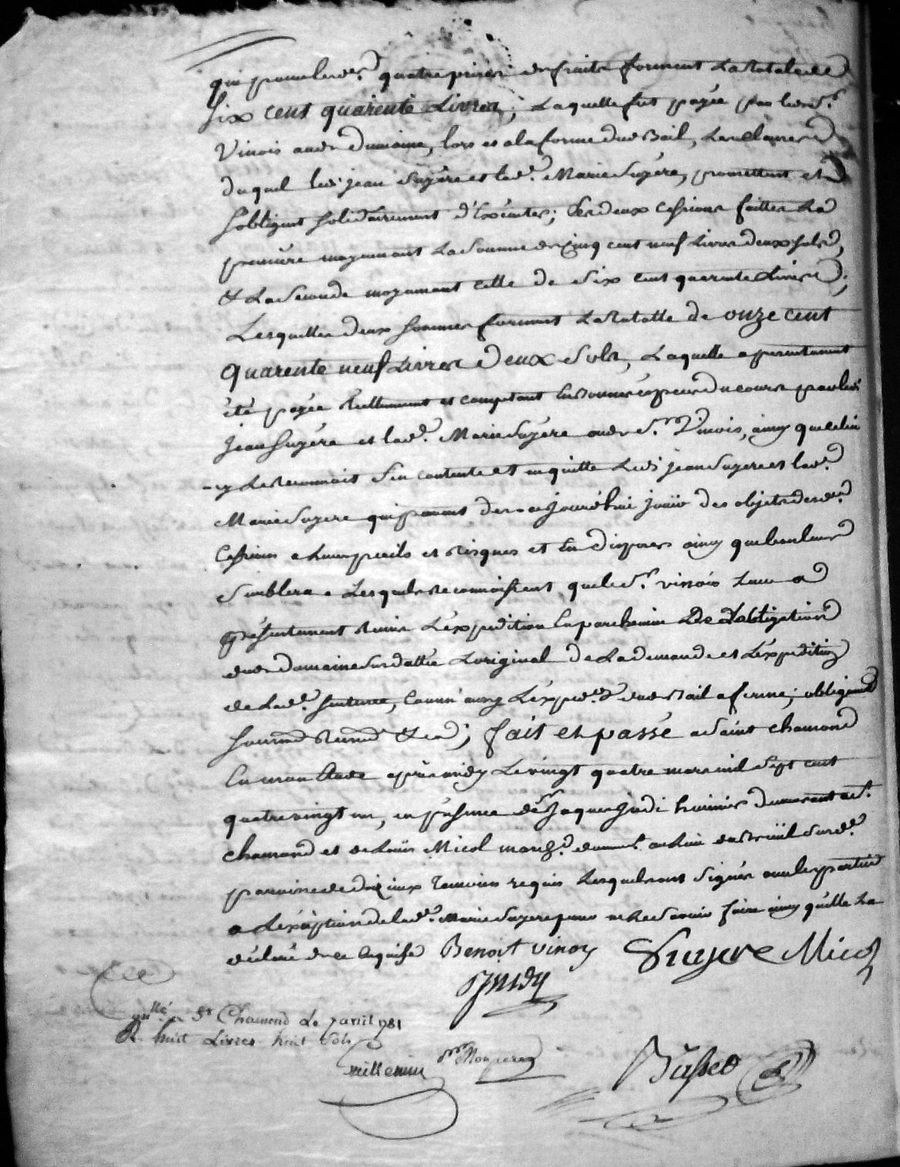 qui pour les d. quatre prises de fruits forment la totale de
Six cent quarente Livres, laquelle fut payée par led. Sr.
Vinois aud. domaine, lors et a la forme dud. Bail, les clauses
duquel led. jean Suyère et lad. Marie Suyère, promettent et
s'obligent solidairement d'Exécuter; ces deux cessions faittes La
première moyennant La Somme de Cinq cent neuf Livres deux sols,
& La Seconde moyennant celle de Six cent quarente Livres;
Lesquelles deux sommes forment La totalle de onze cent
quarente neuf Livres deux Sols, Laquelle a presentement
été payée Réellement et comptant En bonnes espèces du cours par led.
Jean Suyère et lad. Marie Suyère aud. Sr. Vinois, ainsy que celui
-cy Le reconnoit S'en contente et en quitte led. jean Suyere et lad.
Marie Suyere qui pouront des ce jourd'hui jouïr des objets desd.
Cessions a Leurs perils et risques et En disposer ainsy que bon leur
Semblera Lesquels reconnoissent que le Sr. vinois Leur a
présentement Remis L'expedition en parchemin De L'obligation
dud. domaine Sus dattée L'original de La demande et L'expedition
de Lad. Sentence, comm' aussy L'exped. dud. Bail a ferme; obligeant
soumd. Renond. & ca; fait et passé a Saint chamond
En mon Etude après midy Le vingt quatre mars mil Sept cent
quatre vingt un, en présence de Sr. Jaques Judi huissier demeurant a St.
chamond et de Louis Micol march. demeurt. au Lieu du Breüil Sus d.
parroisse de temoins requis Lesquels ont Signés avec les parties
a L'exception de lad. Marie Suyere pour ne Le Savoir faire ainsy qu'elle L'a
déclaré de ce Enquise Benoit vinoy Suyere Micol
Judy
Con.llé a St Chamond Le 7 avril 1781
R. huit Livres huit Sols